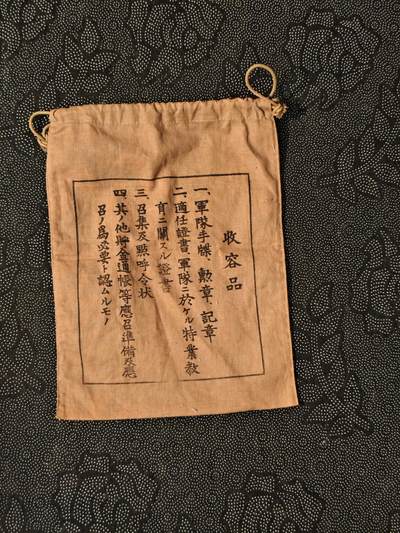 収容品
一、軍隊手牒、勲章、記章
二、適任證書、軍隊ニ於ケル特業教
育ニ關スル證書
三、召集及點呼令状
四、其ノ他貯金通帳等應召準備及應
召ノ爲必要ト認ムルモノ